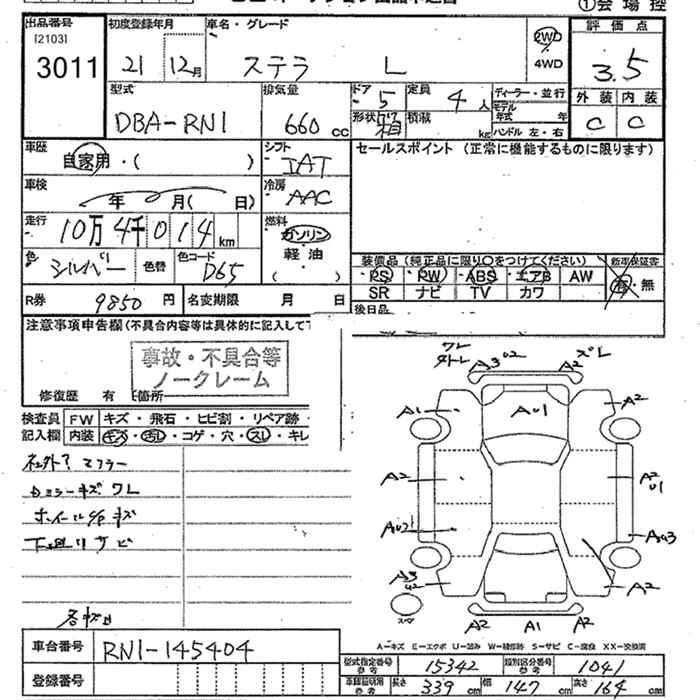 ①会場控
出品番号 初度登録年月 車名・グレード 評価点
[2103]
3011 21 12月 ステラ L 2WD 3.5
4WD
型式 排気量 ドア 5 定員 4人 ディーラー・並行 外装 内装
DBA-RN1 660cc 形状 箱 積載 kg モデル年式 年 C C
ハンドル 左・右
車歴 シフト セールスポイント (正常に機能するものに限ります)
自家用・( ) IAT
車検 冷房
年 月( 日) AAC
走行 燃料
10万4千014km ガソリン
色 色替 色コード 軽油
シルバー D65 ( )
装備品(純正品に限り○をつけてください) 新車保証書
PS PW ABS エアB AW 有・無
SR ナビ TV カワ
R券 9850円 名変期限 月 日 後日品
注意事項申告欄(不具合内容等は具体的に記入して下
事故・不具合等
ノークレーム
修復歴 有 箇所
検査員 FW キズ・飛石・ヒビ割・リペア跡・
記入欄 内装 キズ・汚レ・コゲ・穴・スレ・キレ
社外?マフラー
ミラーキズ ワレ
ホイール キズ
下廻りサビ
各キズ
ワレ
A3 U2 A2 ズレ
A1 AU1 A2
A2 A2
U1
A2
A2 A1 A2
スペア
A-キズ E-エクボ U-凹み W-補修跡 S-サビ C-腐食 XX-交換済
車台番号 RN1-145404
登録番号
型式指定番号 15342 類別区分番号 1041
長さ 339cm 幅 147cm 高さ 164cm